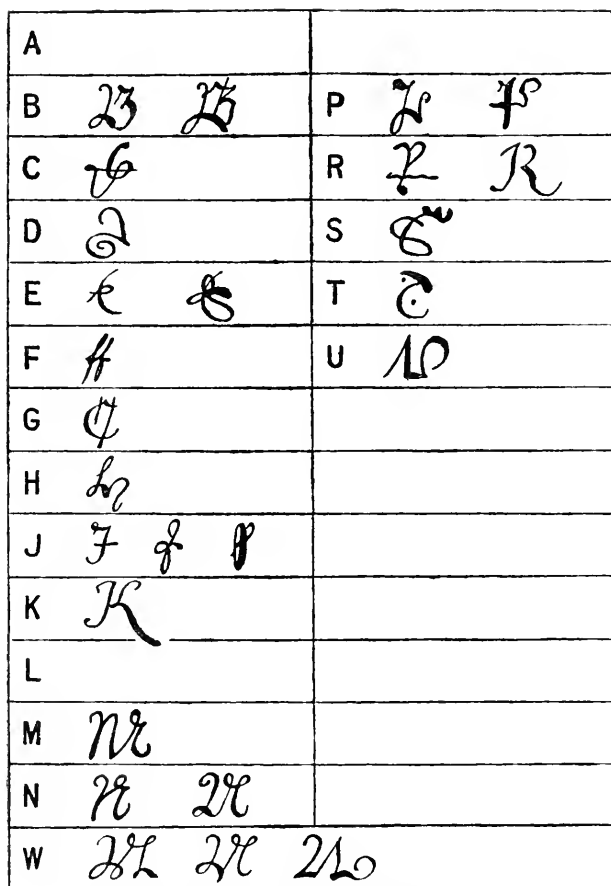 A
B B B P P P
C C R R R
D D S S
E E E T T
F F U U
G G
H H
J J J J
K K
L
M M
N N N
W W W W